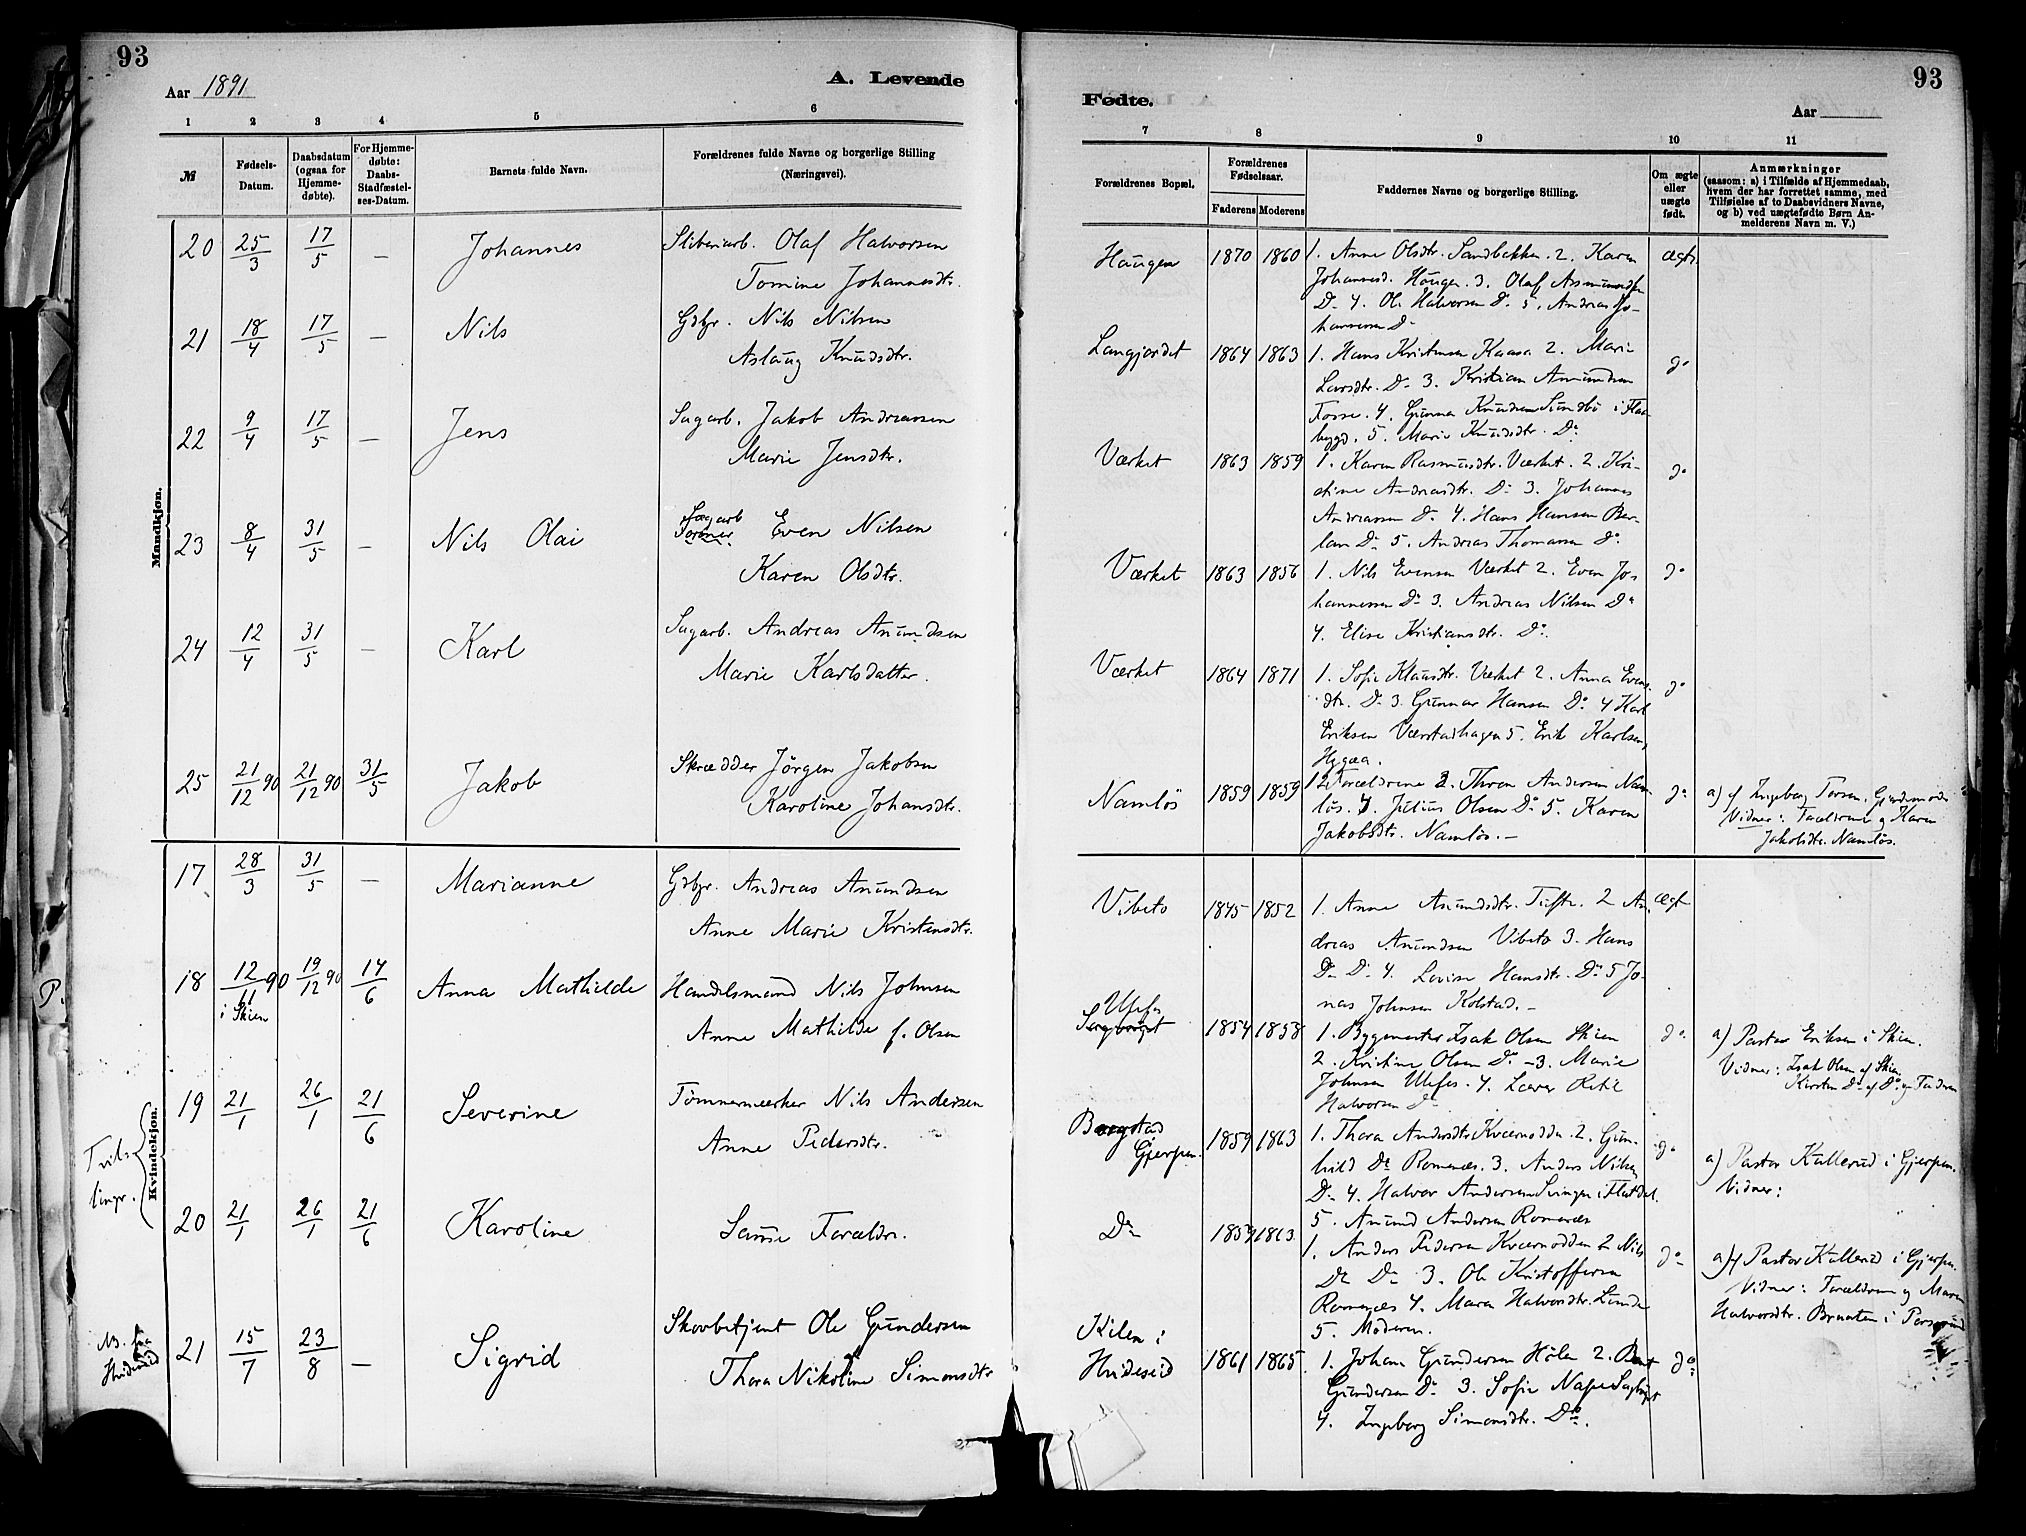 93
Aar 1891
A. Levende
1 2 3 4 5 6
№
Fødsels-
Datum.
Daabsdatum
(ogsaa for
Hjemme-
døbte).
For Hjemme-
døbte:
Daabs-
Stadfæstel-
ses-Datum.
Barnets fulde Navn.
Forældrenes fulde Navne og borgerlige Stilling
(Næringsvei).
Mandkjøn.
20 25/3 17/5 — Johannes Sliberiarb. Olaf Halvorsen
Tomine Johannesdtr.
21 18/4 17/5 — Nils Gdbr. Nils Nilsen
Aslaug Knudsdtr.
22 9/4 17/5 — Jens Sagarb. Jakob Andreassen
Marie Jensdtr.
23 8/4 31/5 — Nils Olai Sagarb Even Nilsen
Karen Olsdtr.
24 12/4 31/5 — Karl Sagarb. Andreas Anundsen
Marie Karlsdatter.
25 21/12 90 21/12 90 31/5 Jakob Skrædder Jörgen Jakobsen
Karoline Johansdtr.
Kvindekjøn.
17 28/3 31/5 — Marianne Gdbr. Andreas Anundsen
Anne Marie Kristensdtr.
18 12/11 90 19/12 90 14/6 Anna Mathilde Handelsmand Nils Johnsen
i Skien
Anne Mathilde f. Olsen
19 21/1 26/1 21/6 Severine Tömmermærker Nils Andersen
Anne Pedersdtr.
Tvil-
linger.
20 21/1 26/1 21/6 Karoline Samme Forældre.
NB. fra
Hvideseid
21 15/7 23/8 — Sigrid Skovbetjent Ole Gundersen
Thora Nikoline Simonsdtr
93
Fødte.
Aar
7 8 9 10 11
Forældrenes Bopæl.
Forældrenes
Fødselsaar.
Faderens Moderens
Faddernes Navne og borgerlige Stilling.
Om ægte
eller
uægte
født.
Anmærkninger
(saasom: a) i Tilfælde af Hjemmedaab,
hvem der har forrettet samme, med
Tilføielse af to Daabsvidners Navne,
og b) ved uægtefødte Børn An-
melderens Navn m. V.)
Haugen 1870 1860 1. Anne Olsdtr. Sandbakken. 2. Karen ægte
Johannesd. Haugen. 3. Olaf Assmundsen
Do 4. Ole Halvorsen Do 5. Andreas Jo-
hannessen Do
Langjordet 1864 1863 1. Hans Kristensen Kaasa 2. Marie do
Larsdtr. Do 3. Kristian Anundsen
Fosse. 4. Gunnar Knudsen Sundbö i Flaa-
bygd. 5. Marie Knudsdtr. Do
Værket 1863 1859 1. Karen Rasmusdtr. Værket. 2. Kri- do
stine Andreasdtr. Do 3. Johannes
Andreassen Do 4. Hans Hansen Ber-
lan Do 5. Andreas Thomassen Do
Værket 1863 1856 1. Nils Evensen Værket 2. Even Jo- do
hannessen Do 3. Andreas Nilsen Do
4. Elise Kristiansdtr. Do.
Værket 1864 1871 1. Sofie Klausdtr. Værket 2. Anna Evens- do
dtr. Do 3. Gunnar Hansen Do 4 Karl
Eriksen Værstadhagen 5. Erik Karlsen,
Hygæa.
Namlös 1859 1859 1 2 Forældrene 3. Thron Andersen Nam- do
lös. 4. Julius Olsen Do 5. Karen
Jakobsdtr. Namlös. —
a) af Ingeborg Torsen, Gjordemoder
Vidner: Forældrene og Karen
Jakobsdtr. Namlös.
Vibeto 1845 1852 1. Anne Anundsdtr. Tufte. 2 An- ægte
dreas Anundsen Vibeto 3. Hans
Do Do 4. Lovise Hansdtr. Do 5 Jo-
nas Johnsen Kolstad. —
Ulefos 1854 1858 1. Bygmester Isak Olsen Skien do
2. Kristine Olsen Do — 3. Marie
Johnsen Ulefos. 4. Lærer
Halvorsen Do
a) Pastor Eriksen i Skien.
Vidner: Isak Olsen af Skien
Kirsten Do af Do og Faderen
Gjerpen. 1859 1863 1. Thora Andersdtr Kværnodden. 2. Gun- do
hild Do Romenæs. 3. Anders Nilsen
Do 4. Halvor Andersen Svinga i Flatdal.
5. Anund Andersen Romenæs
a) Pastor Kullerud i Gjerpen.
Vidner:
Do 1859 1863 1. Anders Pedersen Kværnodden 2 Nils do
Do Do 3. Ole Kristoffersen
Romenæs 4. Maren Halvorsdtr. Lunde
5. Moderen.
a) af Pastor Kullerud i Gjerpen.
Vidner: Forældrene og Maren
Halvorsdtr. Braaten i Porsgrund
Kilen i
Hvideseid 1861 1865 1. Johan Gundersen Hölen 2. Bent do
Gundersen Do 3. Sofie Næs
4. Ingeborg Simonsdtr. Do.